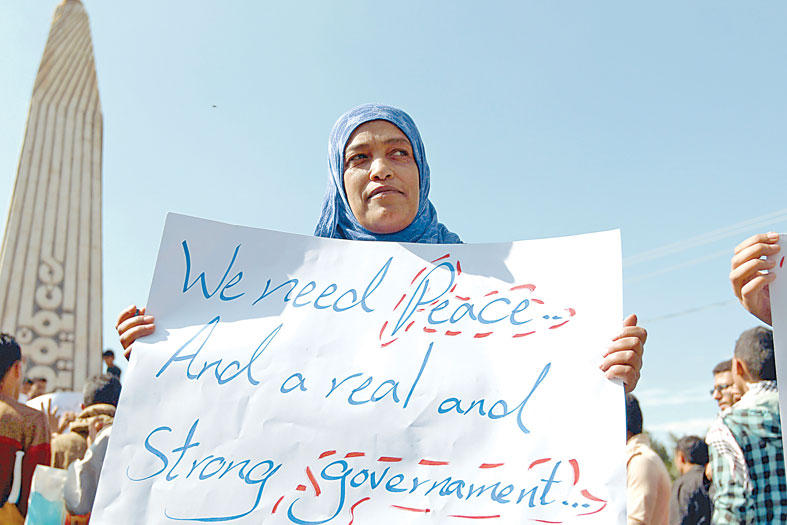 We need Peace...
And a real and
Strong governament...